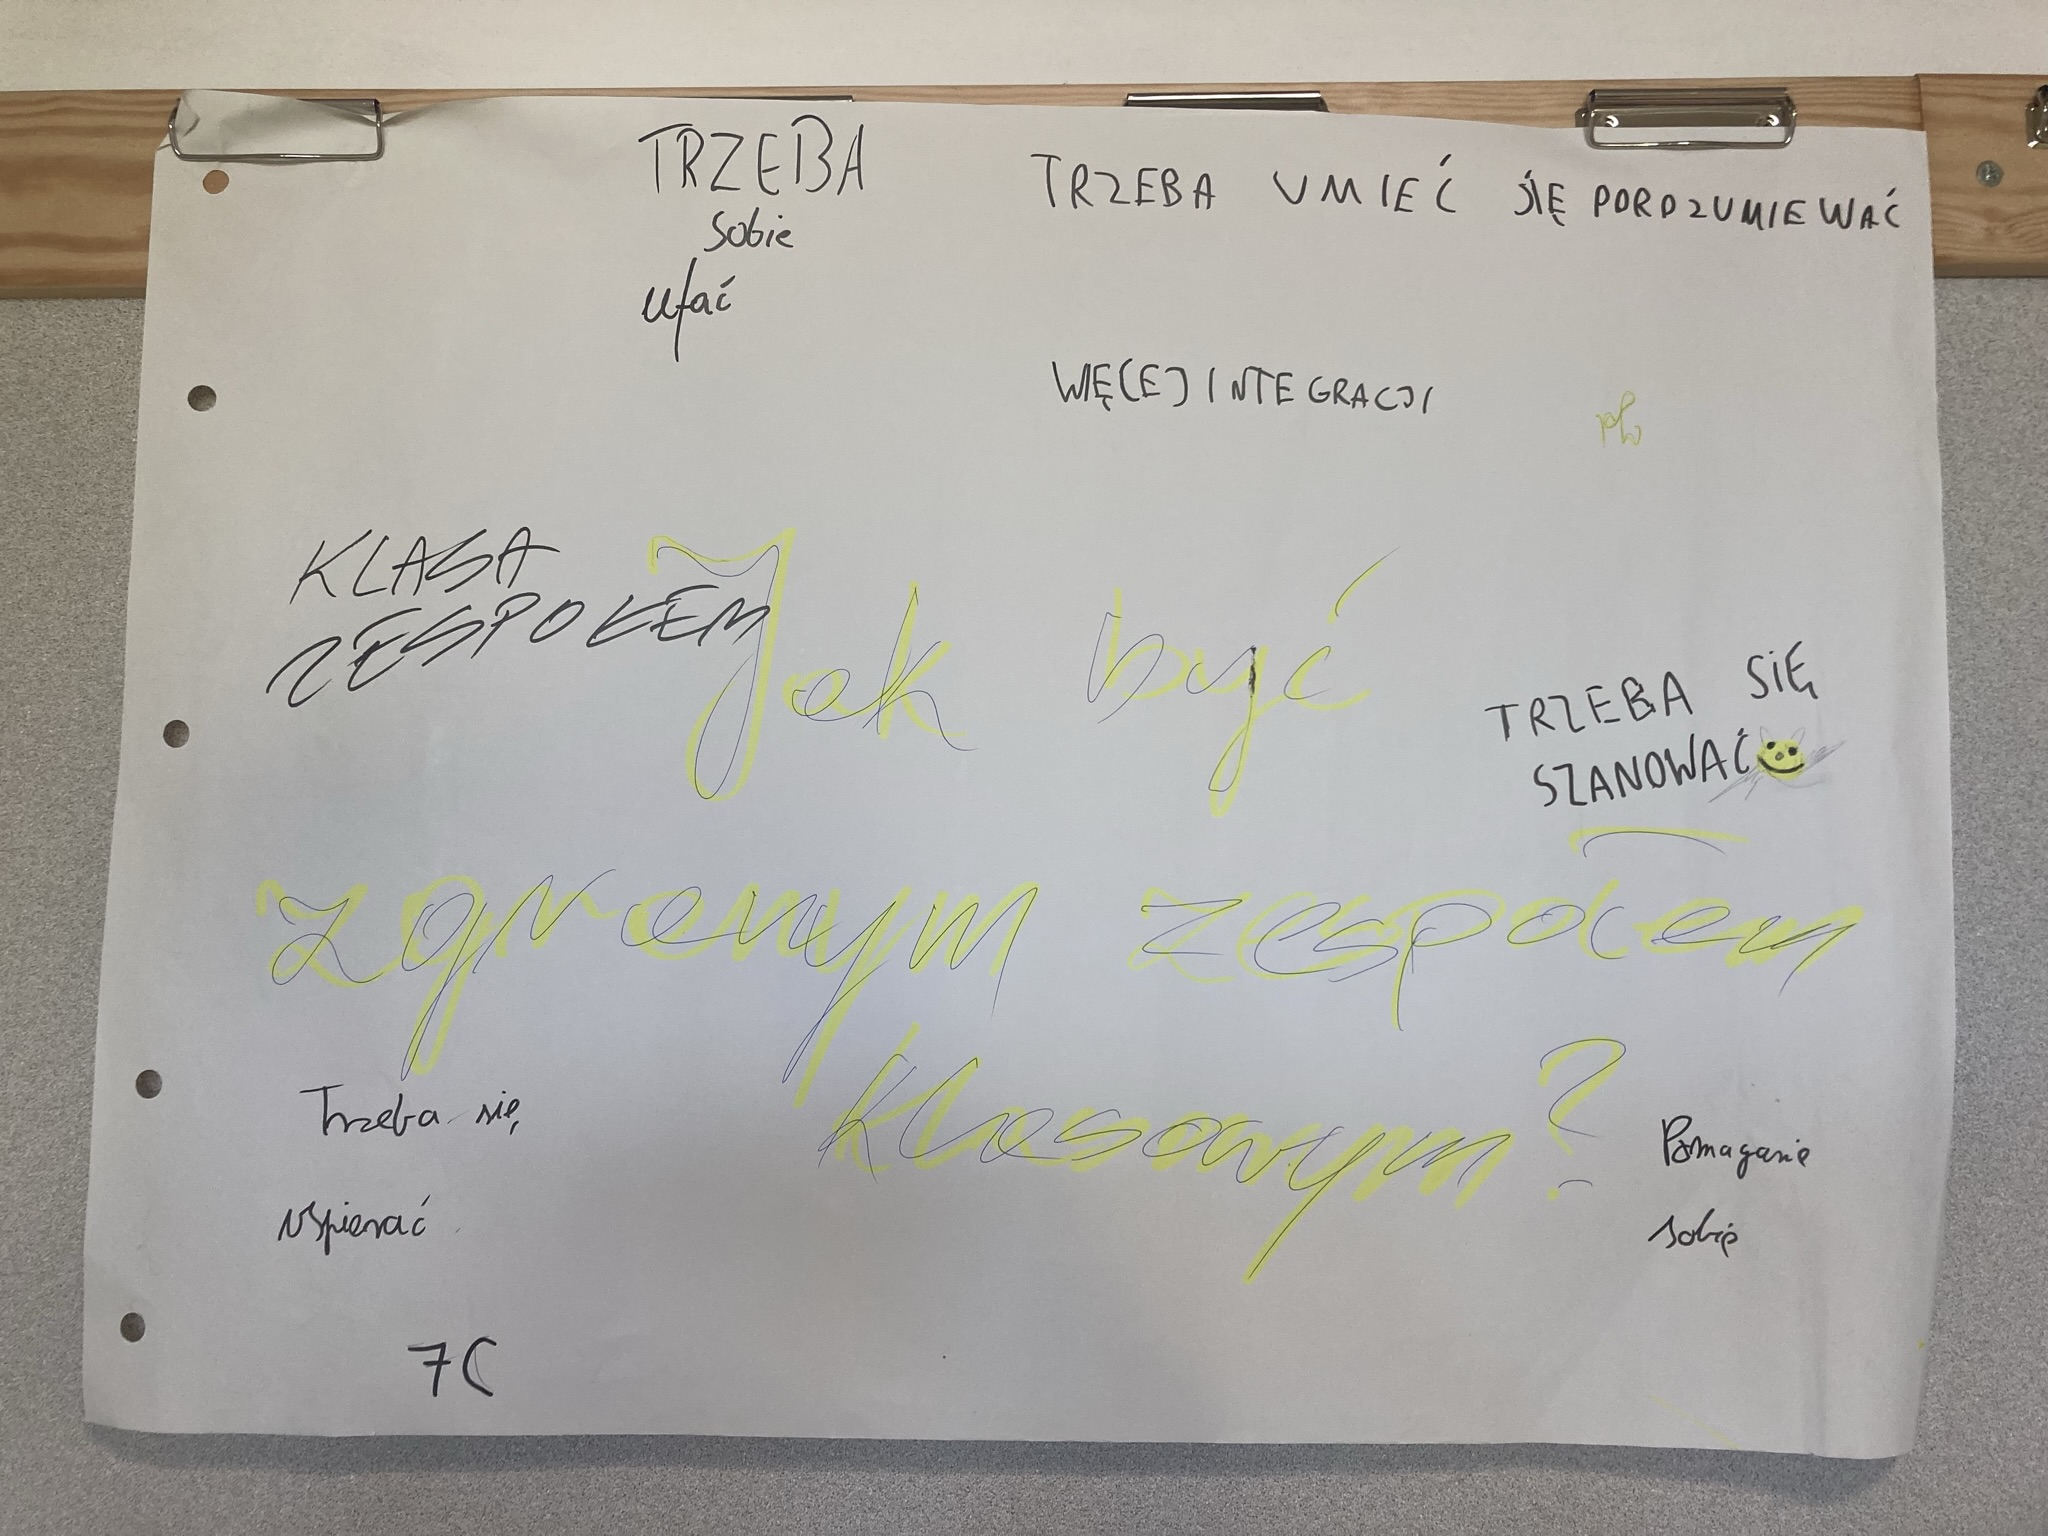 TRZEBA
sobie
ufać
TRZEBA UMIEĆ SIĘ POROZUMIEWAĆ
WIĘCEJ INTEGRACJI
KLASA
ZESPOŁEM
Jak być
TRZEBA SIĘ
SZANOWAĆ
zgranym zespołem
klasowym?
Trzeba się
wspierać
Pomaganie
sobie
7C